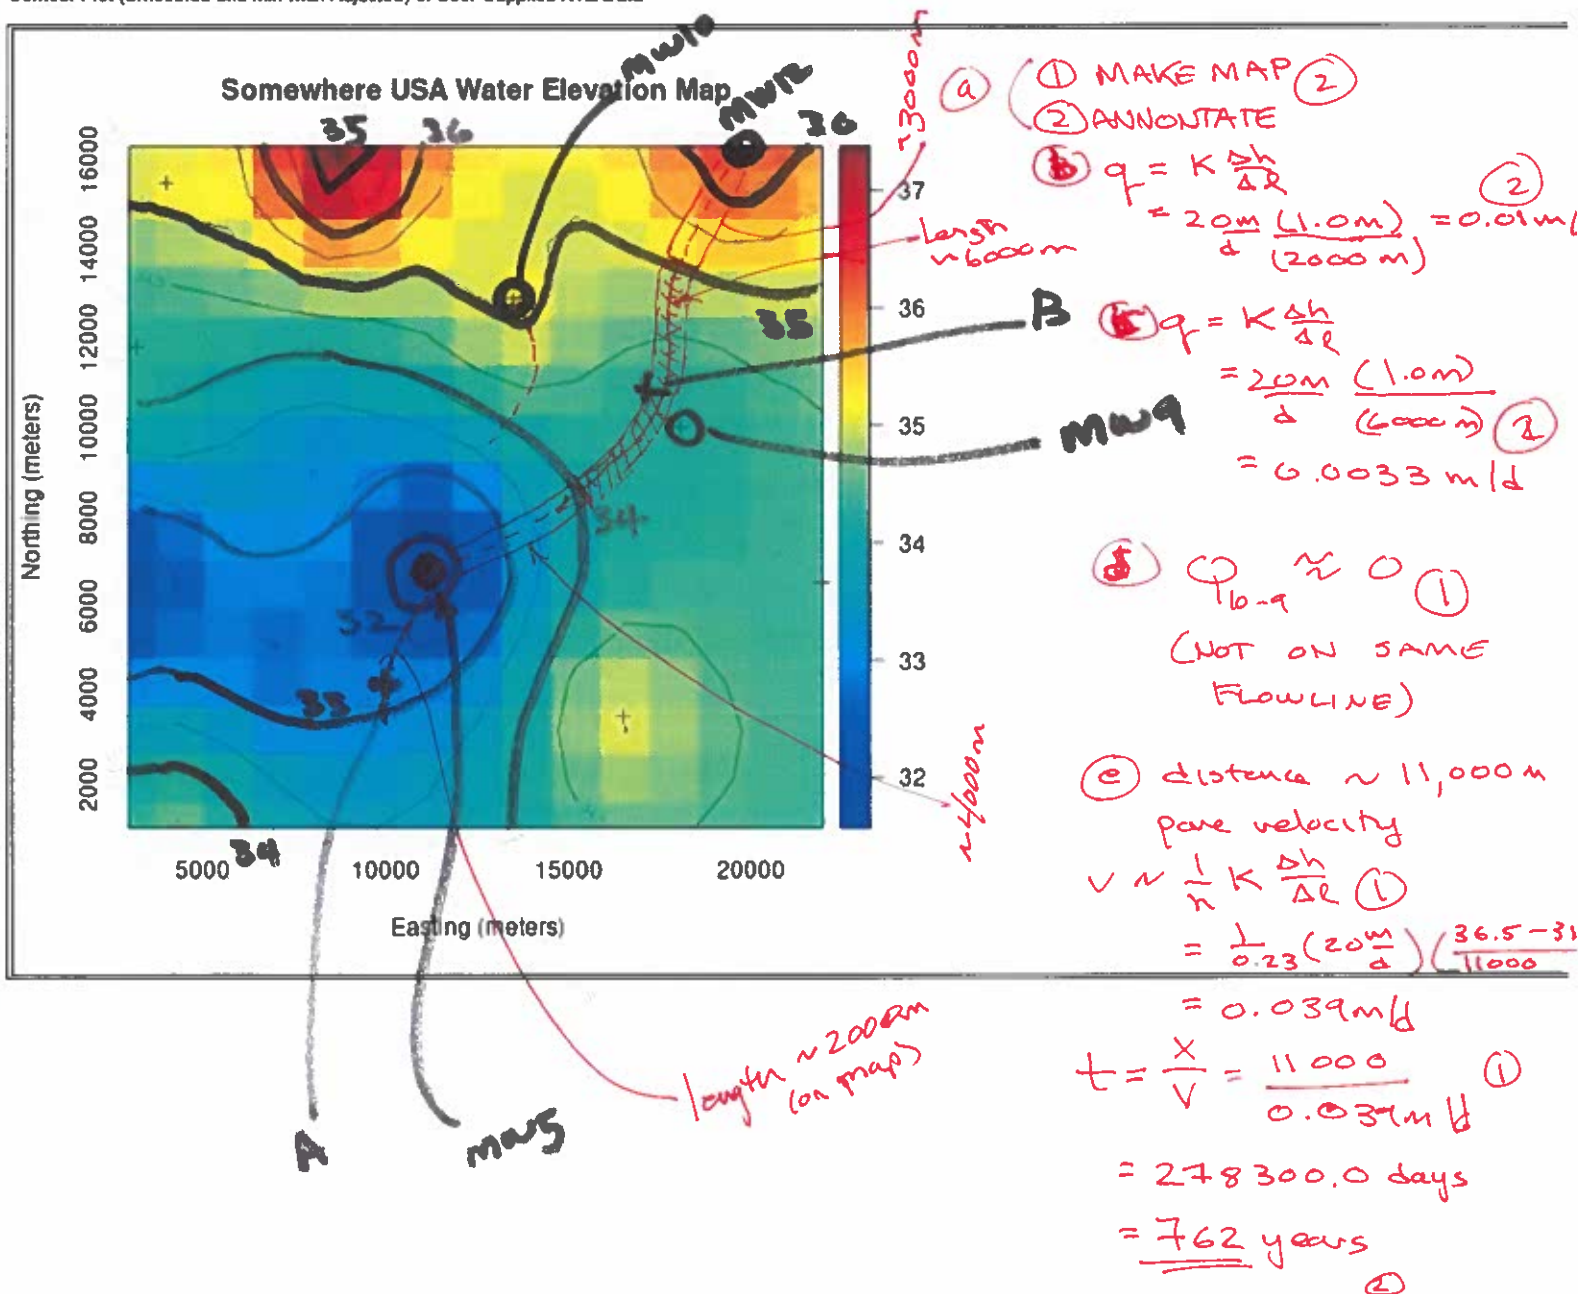 Somewhere USA Water Elevation Map
MW10
MW12
35
36
36
16000
14000
12000
10000
8000
6000
4000
2000
Northing (meters)
5000
10000
15000
20000
Easting (meters)
37
36
35
34
33
32
35
34
32
33
34
B
MW9
A
MW5
~3000m
Length
~6000m
~4000m
length ~2000m
(on map)
a
① MAKE MAP ②
② ANNONTATE
b q = K Δh/Δl ②
= 20m/d (1.0m)/(2000m) = 0.01m/
c q = K Δh/Δl
= 20m/d (1.0m)/(6000m) ②
= 0.0033 m/d
d Q10-9 ≈ 0 ①
(NOT ON SAME
FLOWLINE)
e distance ~ 11,000m
pore velocity
V ~ 1/n K Δh/Δl ①
= 1/0.23 (20m/d) (36.5-31
11000
= 0.039m/d
t = X/V = 11000/0.039m/d ①
= 278300.0 days
= 762 years
②